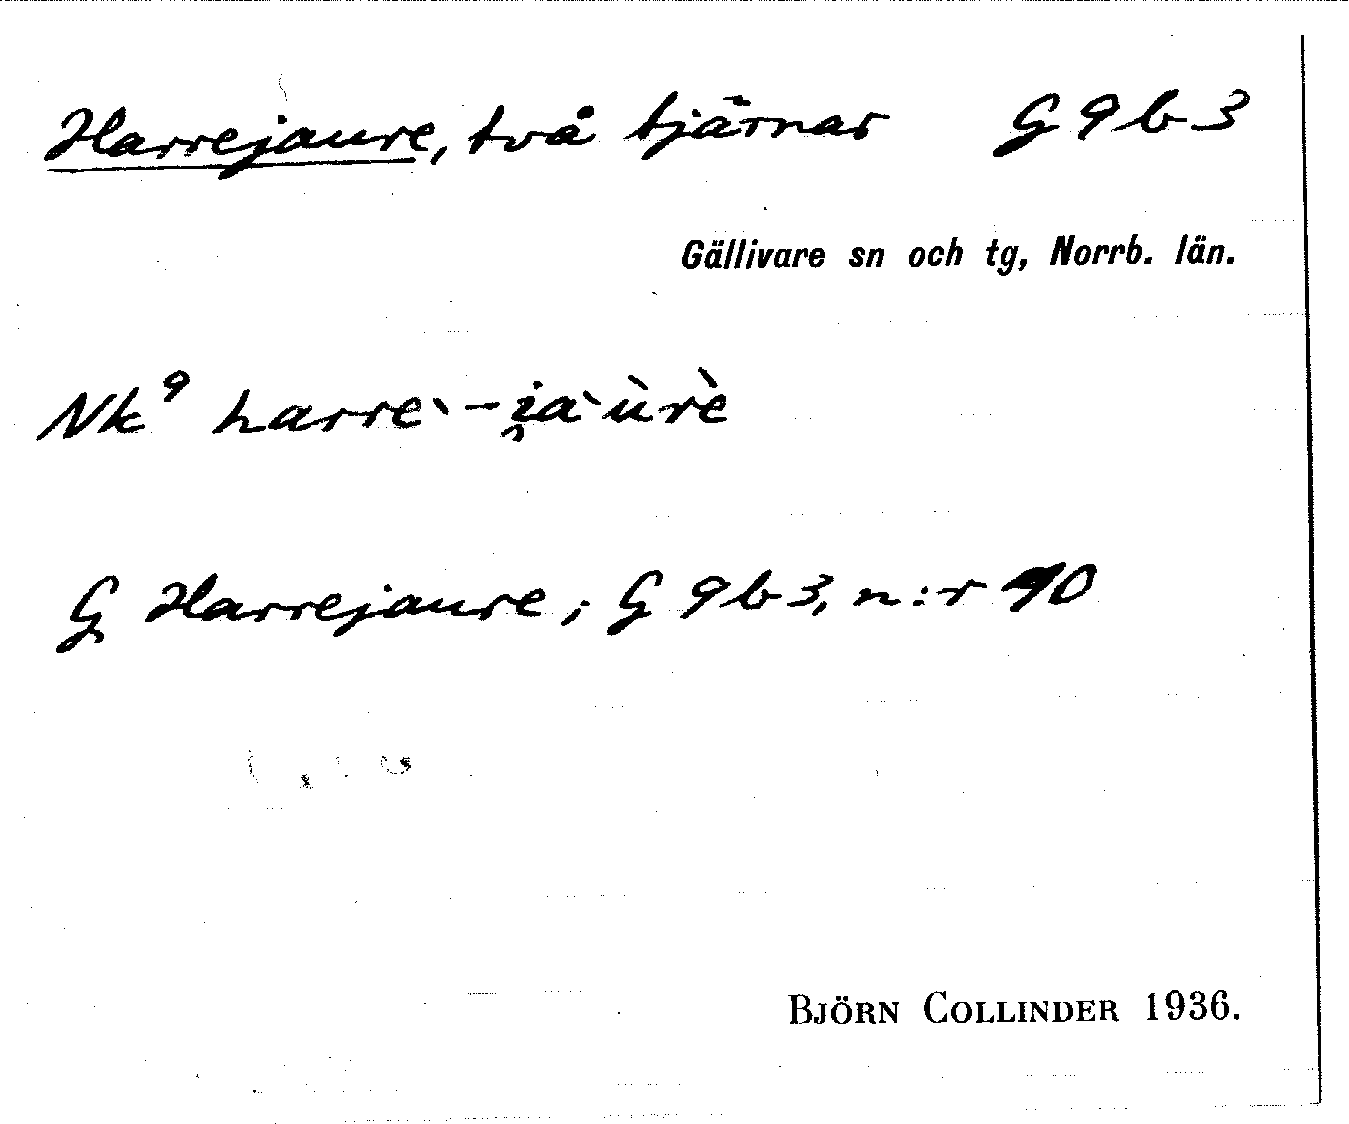 Harrejaure, två tjärnar G 9 b 3
Gällivare sn och tg, Norrb. län.
Nk⁹ harreˋ-i̯aˋùrè
G Harrejaure; G 9 b 3, n:r
BJÖRN COLLINDER 1936.